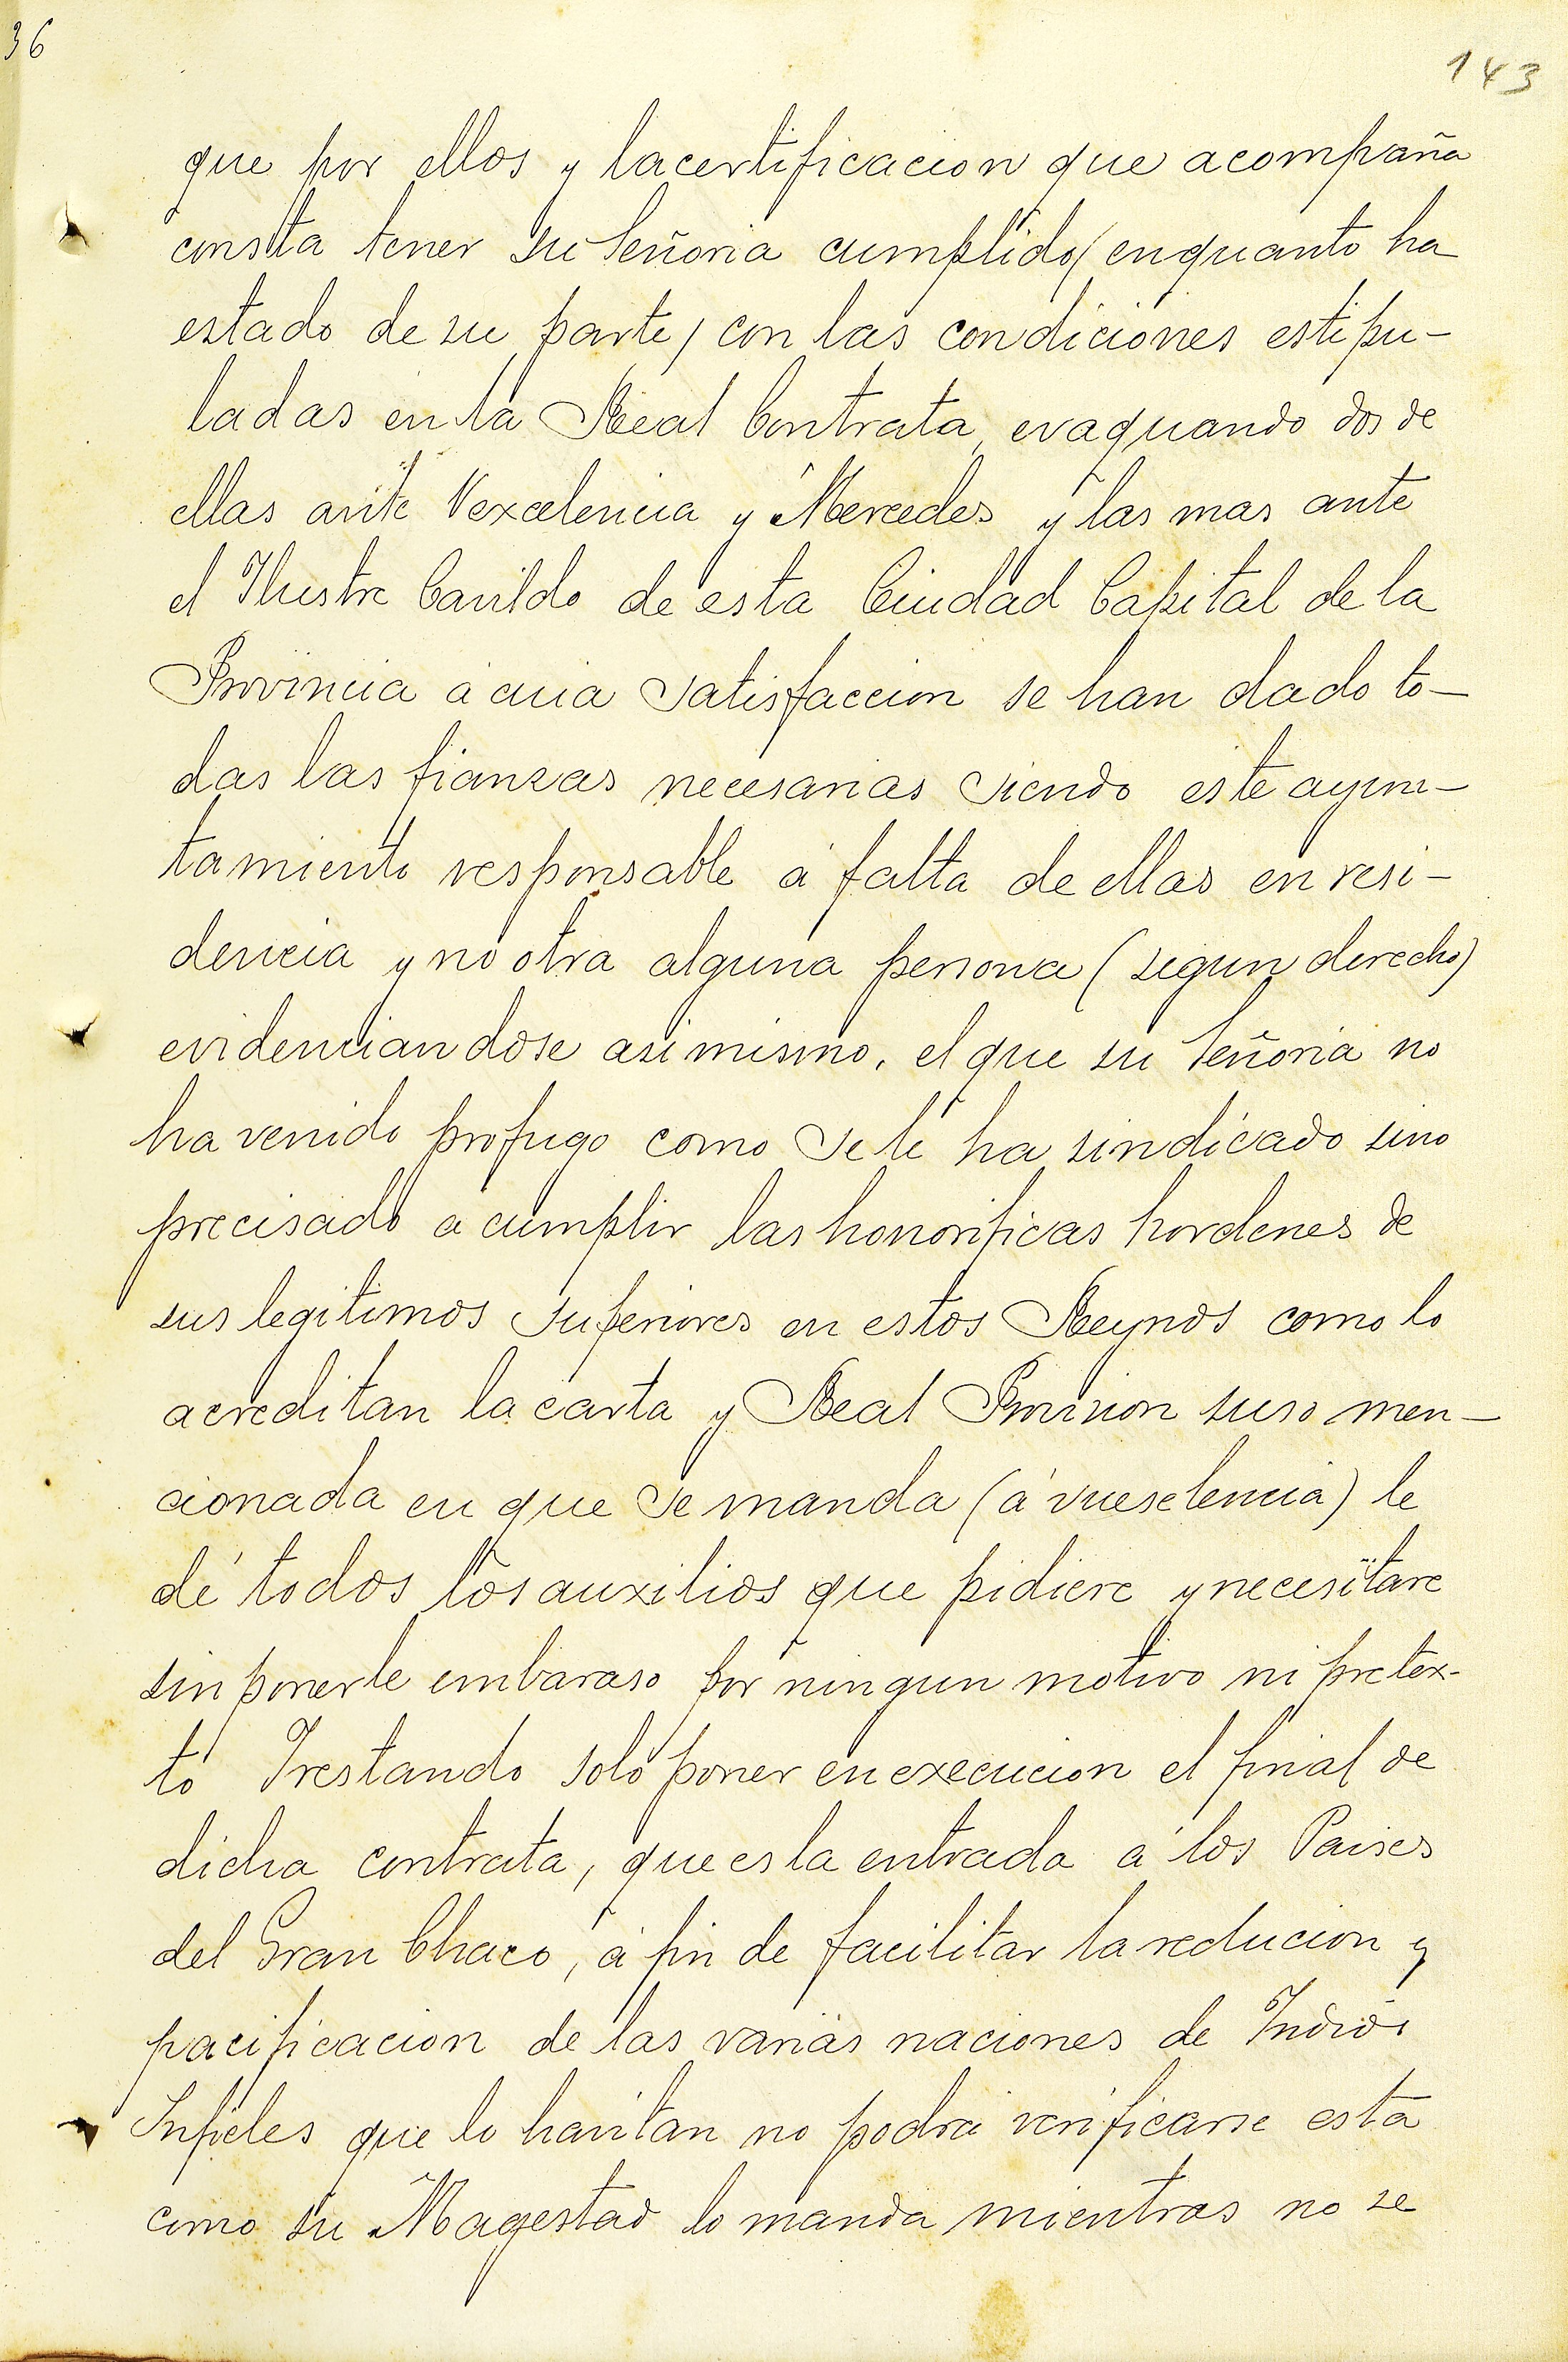 36
143
que por ellos y lacertificacion que acompaña
consta tener su Señoria cumplido (enquanto ha
estado de su parte) con las condiciones estipu-
ladas en la Real Contrata, evaquando dos de
ellas ante Vexcelencia y Mercedes y las mas ante
el Ilustre Cavildo de esta Ciudad Capital de la
Provincia á cuia satisfaccion se han dado to-
das las fianzas necesarias siendo este ayun-
tamiento responsable á falta de ellas en resi-
dencia y no otra alguna persona (segun derecho)
evidenciandose asi mismo, el que su Señoria no
ha venido profugo como se le ha sindicado sino
precisado a cumplir las honorificas hordenes de
sus legitimos superiores en estos Reynos como lo
acreditan la carta y Real Provision suso men-
cionada en que se manda (á vueselencia) le
dé todos los auxilios que pidiere y necesitare
sin ponerle embaraso por ningun motivo ni pretex-
to Irestando solo poner en execucion el final de
dicha contrata, que es la entrada á los Paises
del Gran Chaco, á fin de facilitar la reducion y
pacificacion de las varias naciones de Indios
Infieles que lo havitan no podra verificarse esta
como su Magestad lo manda mientras no se